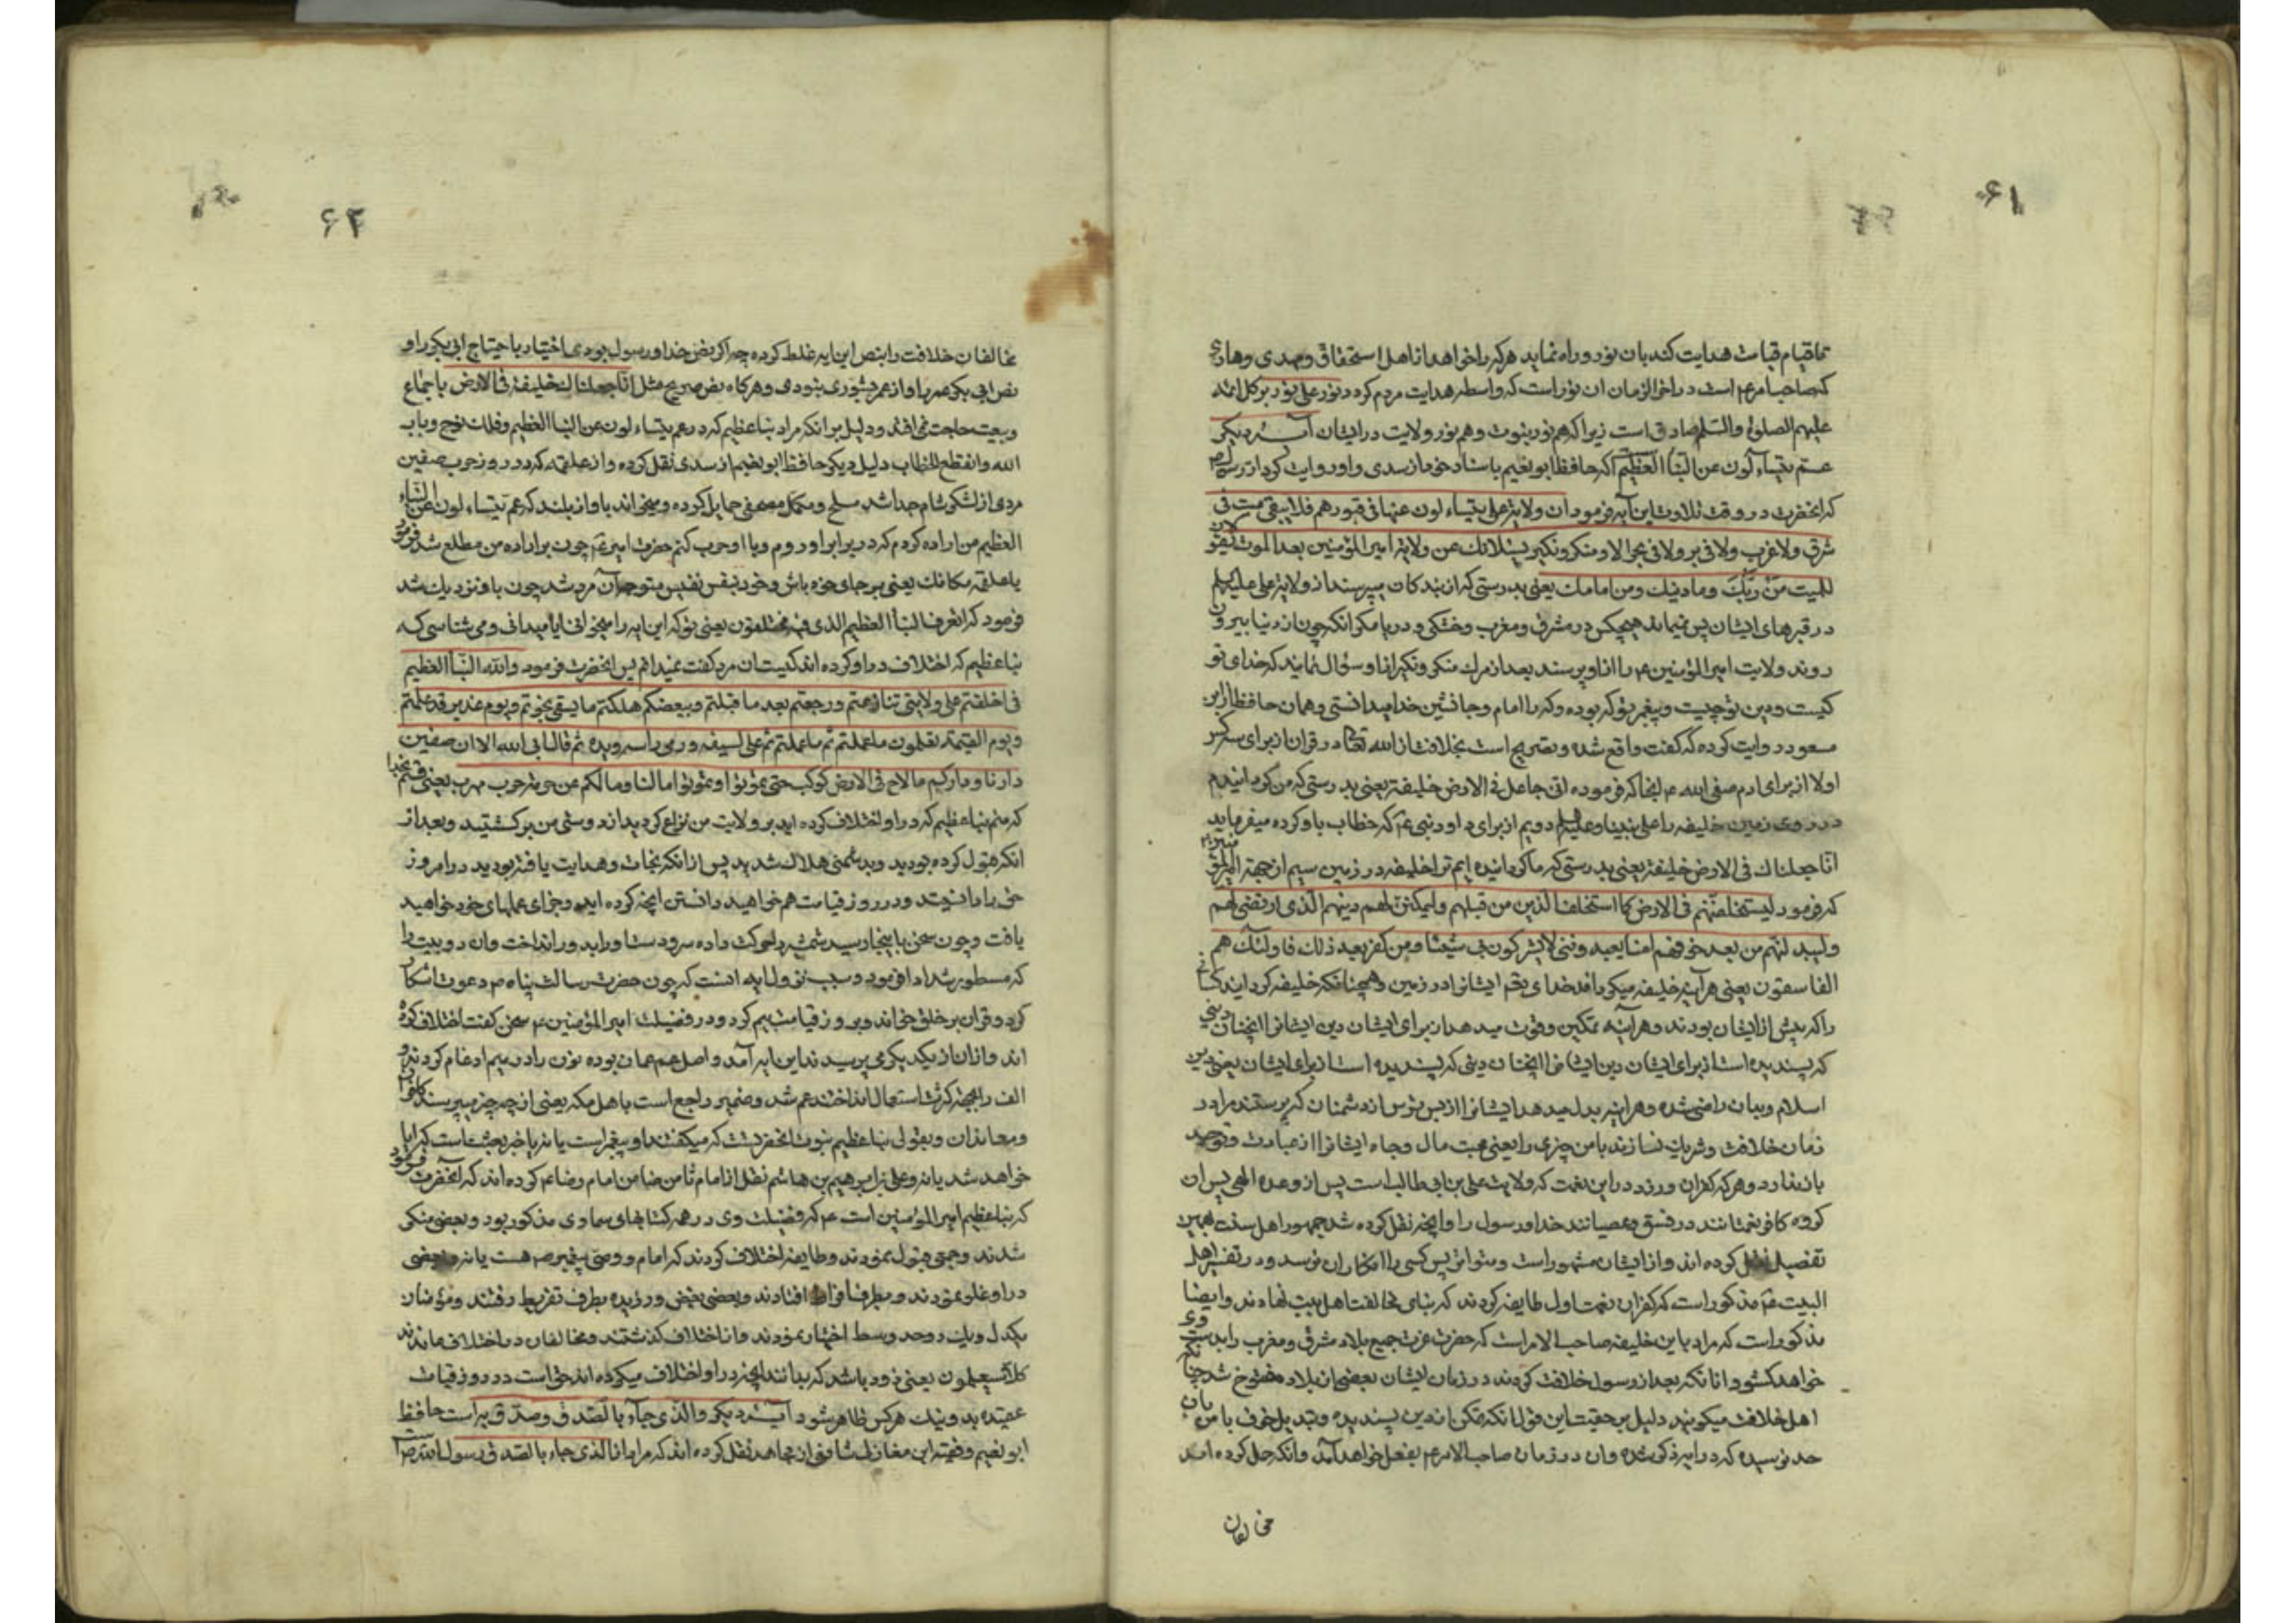 ۶۱
تا قیام قیامت هدایت کند بان نور و راه نماید هر که را خواهد از اهل استحقاق و مهدی و هادی
که صاحب امرعم است در اخر الزمان ان نور است که واسطه هدایت مردم کردد نور علی نور بر کل ائمه
علیهم الصلوة والسلم صادق است زیرا که هم نور نبوت و هم نور ولایت در ایشان آیه دیکر
عم یتساءلون عن النبأ العظیم اکه حافظ ابو نعیم باسناد خود از سدی و او روایت کرد از رسول ص
که انحضرت در وقت تلاوت این آیه فرمود ان ولایة علی یتساءلون عنها فی قبورهم فلا یبقی میت فی
شرق ولا غرب ولا فی بر ولا فی بحر الا و منکر و نکیر یسئلانک عن ولایة امیر المؤمنین بعد الموت یقولان
للمیت من ربک وما دینک ومن امامک یعنی بدرستی که از بندکان میپرسند از ولایة علی علیه السلم
در قبرهای ایشان پس نمیماند هیچکس در مشرق و مغرب و خشکی و دریا مکر انکه چون از دنیا بیرون
روند ولایت امیر المؤمنین ع را از او پرسند بعد از مرک منکر و نکیر از او سؤال نمایند که خدای تو
کیست و دین تو چیست و پیغمبر تو که بوده و که را امام و جانشین خدا میدانستی و همان حافظ از ابن
مسعود روایت کرده که کفت واقع شده و تصریح است بخلافت از الله تعالی در قران از برای سه کس
اولا از برای ادم صفی الله ع انجا که فرموده انی جاعل فی الارض خلیفة یعنی بدرستی که من کردانیدم
در روی زمین خلیفه را علی نبینا و علیه السلم دویم از برای داود نبی ع که خطاب باو کرده میفرماید
انا جعلناک فی الارض خلیفة یعنی بدرستی که ما کردانیده ایم ترا خلیفه در زمین سیم از جهة امیر المؤمنین
که فرمود لیستخلفنهم فی الارض کما استخلف الذین من قبلهم ولیمکنن لهم دینهم الذی ارتضی لهم
ولیبدلنهم من بعد خوفهم امنا یعبدوننی لا یشرکون بی شیئا ومن کفر بعد ذلک فاولئک هم
الفاسقون یعنی هر آینه خلیفه میکرداند خدای تعم ایشانرا در زمین همچنانکه خلیفه کردانید کسانی
را که پیش از ایشان بودند و هر آینه تمکین و قوت میدهد از برای ایشان دین ایشانرا انچنان دینی
که پسندیده است از برای ایشان دین ایشانرا انچنان دینی که پسندیده است از برای ایشان یعنی دین
اسلام و بدان راضی شده و هر اینه بدل میدهد ایشانرا از پس ترس از دشمنان که پرستند مرا در
زمان خلافت و شریک نسازند با من چیزی را یعنی محبت مال و جاه ایشانرا از عبادت و توحید
باز ندارد و هر که کفران ورزد در این نعمت که ولایت علی بن ابی طالب است پس از وعده الهی پس ان
کروه کافر نعمتانند در فسق و عصیانند خدا و رسول را و انچه نقل کرده شد جمهور اهل سنت بهمین
تفصیل نقل کرده اند و از ایشان مشهور است و متواتر پس کسی را انکار ان نرسد و در تفسیر اهل
البیت ع مذکور است که کفران نعمت اول طایفه کردند که بنای مخالفت اهل بیت نهادند و ایضا
مذکور است که مراد باین خلیفه صاحب الامر است که حضرت عزت جمیع بلاد مشرق و مغرب را بدست وی
خواهد کشود و انانکه بعد از رسول خلافت کردند در زمان ایشان بعضی از بلاد مفتوح شد چنانکه
اهل خلافت میکویند دلیل بر حقیت این قول انکه تمکن از دین پسندیده و تبدیل خوف با من بان
حد نرسیده که در ایه مذکور شده وان در زمان صاحب الامرعم بفعل خواهد آمد و انکه حمل کرده اند
مخالفان
۶۲
مخالفان خلافت را بنص این ایه غلط کرده چه اکر بنص خدا و رسول بودی اختیار با حتیاج ابی بکر را و
نص ابی بکر عمر را و از عمر بشوری نبودی و هر کاه نص صریح مثل انا جعلناک خلیفة فی الارض باجماع
و بیعت حاجت نمی افتد و دلیل بر انکه مراد نباء عظیم که در عم یتساءلون عن النبأ العظیم وفلک نوح و باب
الله و انقطع الخطاب دلیل دیکر حافظ ابو نعیم از سدی نقل کرده و از علقمه که در روز حرب صفین
مردی از لشکر شام جدا شد مسلح و مکمل مصحفی حمایل کرده و میخواند باواز بلند که عم یتساءلون عن النباء
العظیم من اراده کردم که در برابر او روم و با او حرب کنم حضرت امیر ع چون بر اراده من مطلع شد فرمود
یا علقمه مکانک یعنی بر جای خود باش و خود بنفس نفیس متوجه آن مرد شد چون باو نزدیک شد
فرمود که اتعرف النبأ العظیم الذی فیه مختلفون یعنی تو که این ایه را میخوانی ایا میدانی و می شناسی که
نباء عظیم که اختلاف در او کرده اند کیست ان مرد کفت نمیدانم پس انحضرت فرمود والله النبأ العظیم
فی اختلفتم علی ولایتی تنازعتم ورجعتم بعد ما قبلتم وببغضکم هلکتم ما بسیفی نجوتم ویوم غدیر قد علمتم
ویوم القیمة تعلمون ما عملتم ثم علی بسیفه ورمی راسه ویده ثم قال ابی الله الا ان صفین
دارنا ودارکم ما لاح فی الارض کوکب حتی تموتوا او نموتوا اما لنا وما لکم عن حومة حرب مهرب یعنی قسم بخدا
که منم نباء عظیم که در او اختلاف کرده اید بر ولایت من نزاع کردید از دوستی من برکشتید و بعد از
انکه قبول کرده بودید و بدشمنی هلاک شدید پس از انکه نجات و هدایت یافته بودید در امروز
حق ما دانستید و در روز قیامت هم خواهید دانستن انچه کرده اید و جزای عملهای خود خواهید
یافت و چون سخن باینجا رسید شمشیر حرکت داده سر و دست او را بدور انداخت وان دو بیت را
که مسطور شد ادا فرمود و سبب نزول ایه انست که چون حضرت رسالت پناه ص دعوت اشکارا
کرد و قران بر خلق خواند و بروز قیامت بیم کرد و در فضیلت امیر المؤمنین ع سخن کفت اختلاف کرده
اند و ازان از یکدیکر می پرسیدند این ایه آمد و اصل عم عمان بوده نون را در میم ادغام کردند و
الف را بجهة کثرت استعمال انداختند عم شد و ضمیر راجع است باهل مکه یعنی از چه چیز میپرسند کافران
و معاندان و بقولی نباء عظیم نبوت انحضرتست که میکفتند او پیغمبر است یا نه یا خبر بعث است که ایا
خواهد شد یا نه و علی بن ابرهیم بن هاشم نقل از امام ثامن ضامن امام رضا ع کرده اند که انحضرت فرمود
که نباء عظیم امیر المؤمنین است ع که فضیلت وی در همه کتابهای سماوی مذکور بود و بعضی منکر
شدند و جمعی قبول نمودند و طایفه اختلاف کردند که امام و وصی پیغمبر ص هست یا نه و بعضی
در او غلو نمودند و بطرف افراط افتادند و بعضی بغض ورزیده بطرف تفریط رفتند و مؤمنان
یکدل و یک دو حد وسط اختیار نمودند و از اختلاف کذشتند و مخالفان در اختلاف ماندند
کلا سیعلمون یعنی زود باشد که بدانند انچه در او اختلاف میکرده اند حق است در روز قیامت
عقیده بد و نیک هر کس ظاهر شود آیه دیکر والذی جاء بالصدق وصدق به است حافظ
ابو نعیم و فقیه ابن مغازلی شافعی از مجاهد نقل کرده اند که مراد از الذی جاء بالصدق رسول الله ص است